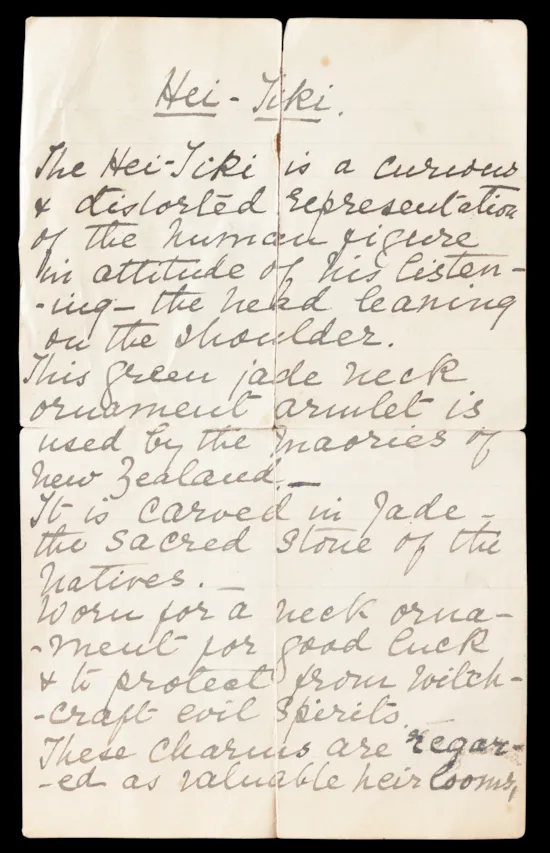 Hei-Tiki.
The Hei-Tiki is a curious
& distorted representation
of the human figure
in attitude of his listen-
-ing - the head leaning
on the shoulder.
This green jade neck
ornament armlet is
used by the maories of
New Zealand. -
It is carved in Jade -
the sacred stone of the
natives. -
Worn for a neck orna-
-ment for good luck
& to protect from witch-
-craft evil spirits.
These charms are regar-
-ed as valuable heirlooms,